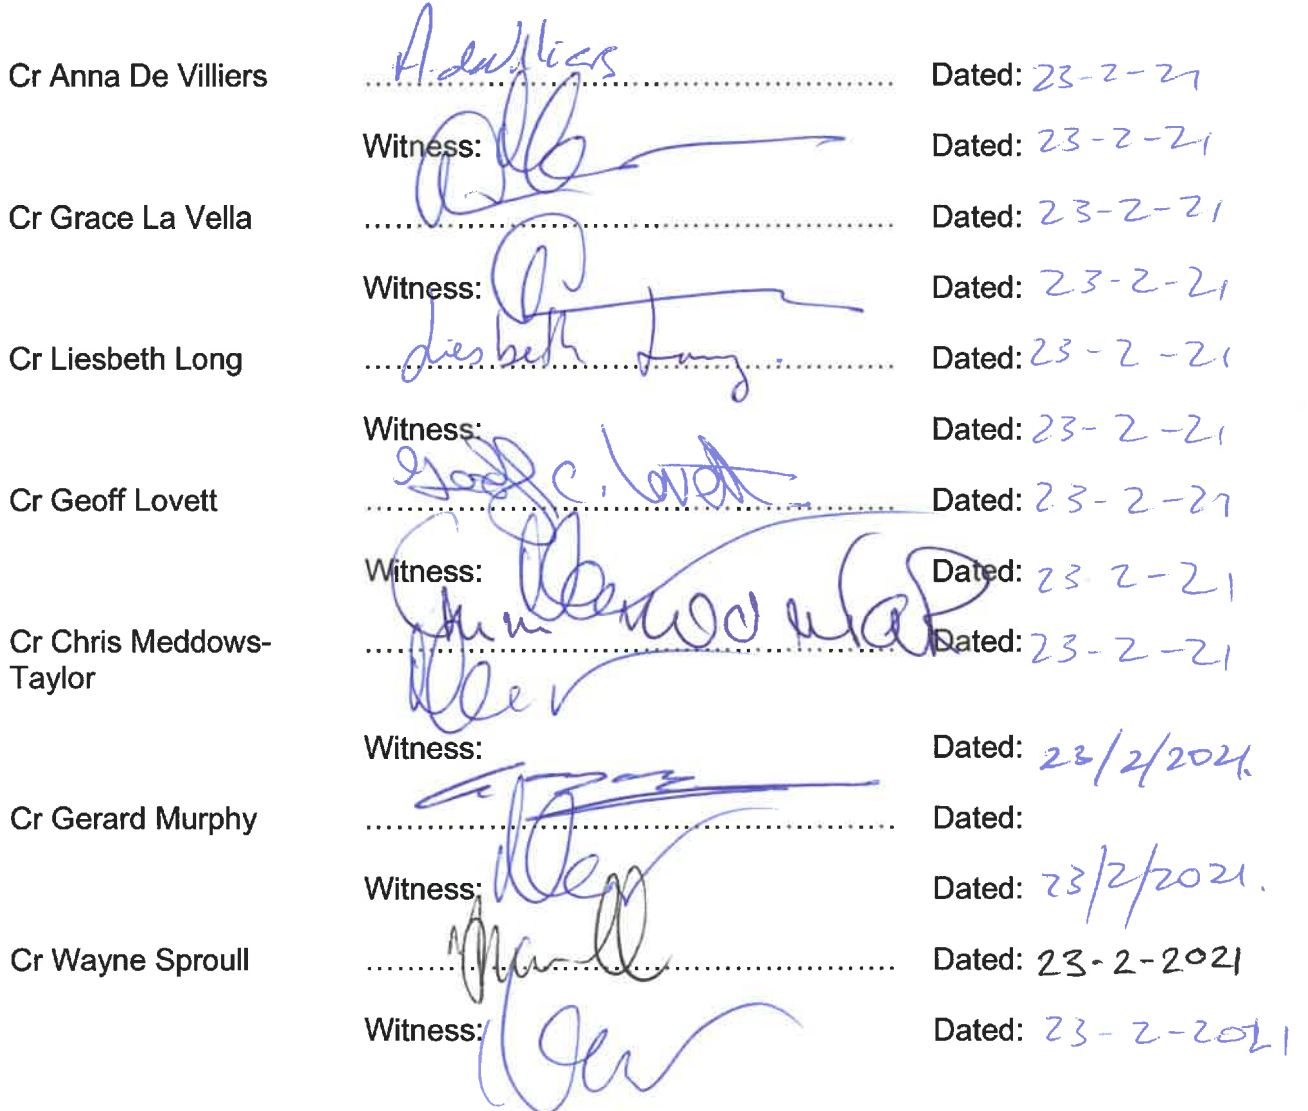 Cr Anna De Villiers A. deVilliers Dated: 23-2-21
Witness: Dated: 23-2-21
Cr Grace La Vella Dated: 23-2-21
Witness: Dated: 23-2-21
Cr Liesbeth Long Liesbeth Long. Dated: 23-2-21
Witness: Dated: 23-2-21
Cr Geoff Lovett Geoff C. Lovett Dated: 23-2-21
Witness: Dated: 23 2-21
Cr Chris Meddows- Dated: 23-2-21
Taylor
Witness: Dated: 23/2/2021.
Cr Gerard Murphy Dated:
Witness: Dated: 23/2/2021.
Cr Wayne Sproull Dated: 23-2-2021
Witness: Dated: 23-2-2021